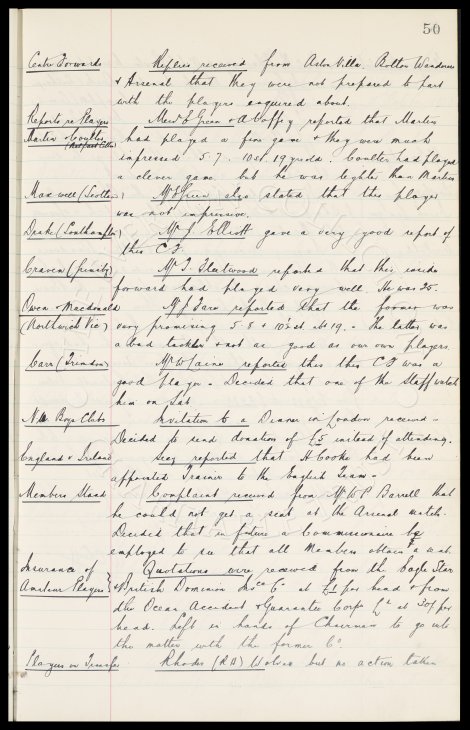 50
Centre Forwards Replies received from Aston Villa Bolton Wanderers
& Arsenal that they were not prepared to part
with the players enquired about.
Reports re Players Messrs E Green & A Coffey reported that Martin
Martin & Coulter (Belfast Celtic) had played a fine game & they were much
impressed 5.7. 10st. 19 yrs old. Coulter had played
a clever game but he was lighter than Martin
Maxwell (Scotland) Mr E Green also stated that this player
was not impressive.
Drake (Southampton) Mr J Elliott gave a very good report of
this C.F.
Craven (Grimsby) Mr T. Fleetwood reported that this inside
forward had played very well. He was 25.
Owen & Macdonald Mr J Fare reported that the former was
(Northwich Vic) very promising 5.8 & 10½ st abt 19. - The latter was
a bad tackler & not as good as our own players.
Carr (Trimdon) Mr W Caine reported this this CF was a
good player - Decided that one of the Staff watch
him on Sat.
N.W. Boys Clubs Invitation to a Dinner in London received -
Decided to send donation of £5 instead of attending.
England v Ireland Secy reported that H Cooke had been
appointed Trainer to the English Team -
Members Stand Complaint received from Mr W P Barrell that
he could not get a seat at the Arsenal match.
Decided that in future a Commissionaire be
employed to see that all Members obtain a seat.
Insurance of Quotations were received from the Eagle Star
Amateur Players & British Dominion Insce Co at £1 per head & from
the Ocean Accident & Guarantee Corp Ld at 30/- per
head. Left in hands of Chairman to go into
the matter with the former Co.
Players on Transfer Rhodes (R A) Wolves but no action taken